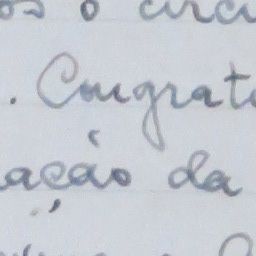 os o circ
. Congrat
ação da